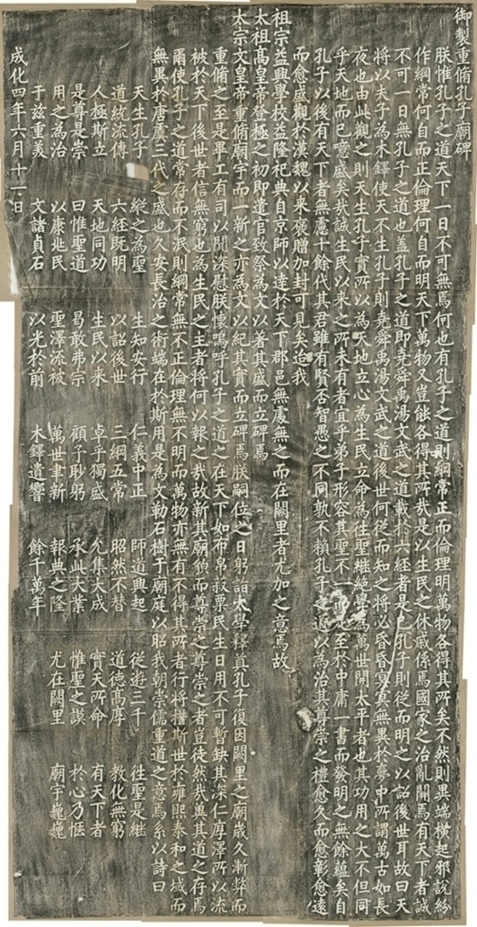 御製重脩孔子廟碑
朕惟孔子之道天下一日不可無焉何也有孔子之道則綱常正而倫理明萬物各得其所矣不然則異端橫起邪說紛
作綱常何自而正倫理何自而明天下萬物又豈能各得其所哉是以生民之休戚係焉國家之治亂關焉有天下者誠
不可一日無孔子之道也蓋孔子之道即堯舜禹湯文武之道載於六經者是已孔子則從而明之以詔後世耳故曰天
將以夫子為木鐸使天不生孔子則堯舜禹湯文武之道後世何從而知之將必昏昏冥冥無異於夢中所謂萬古如長
夜也由此觀之則天生孔子實所以為天地立心為生民立命為往聖繼絕學為萬世開太平者也其功用之大不但同
乎天地而已噫盛矣哉誠生民以來之所未有者宜乎弟子形容其聖不一至於中庸一書而發明之無餘蘊矣自
孔子以後有天下者無慮十餘代其君雖有賢否智愚之不同孰不賴孔子之道以為治其尊崇之禮愈久而愈彰愈遠
而愈盛觀於漢魏以來褒贈加封可見矣迨我
祖宗益興學校益隆祀典自京師以達於天下郡邑無處無之而在闕里者尤加之意焉故
太祖高皇帝登極之初即遣官致祭為文以著其盛而立碑焉
太宗文皇帝重脩廟宇而一新之亦為文以紀其實而立碑焉朕嗣位之日躬詣太學釋奠孔子復因闕里之廟歲久漸弊而
重脩之至是畢工有司以聞深慰朕懷嗚呼孔子之道之在天下如布帛菽粟民生日用不可暫缺其深仁厚澤所以流
被於天下後世者信無窮也為生民之主者將何以報之哉故新其廟貌而尊崇之尊崇之者豈徒然哉冀其道之存焉
爾使孔子之道常存而不泯則綱常無不正倫理無不明而萬物亦無有不得其所者行將措斯世於雍熙泰和之域而
無異於唐虞三代之盛也久安長治之術端在於斯用是為文勒石樹于廟庭以昭我朝崇儒重道之意焉系以詩曰
天生孔子 縱之為聖 生知安行 仁義中正 師道興起 從遊三千 往聖是繼
道統流傳 六經既明 以詔後世 三綱五常 昭然不替 道德高厚 教化無窮
人極斯立 天地同功 生民以來 卓乎獨盛 允集大成 實天所命 有天下者
是尊是崇 曰惟聖道 曷敢弗宗 顧予眇躬 承此大業 惟聖之謨 於心乃愜
用之為治 以康兆民 聖澤流被 萬世聿新 報典之隆 尤在闕里 廟宇巍巍
于玆重美 文諸貞石 以光於前 木鐸遺響 餘千萬年
成化四年六月十一日